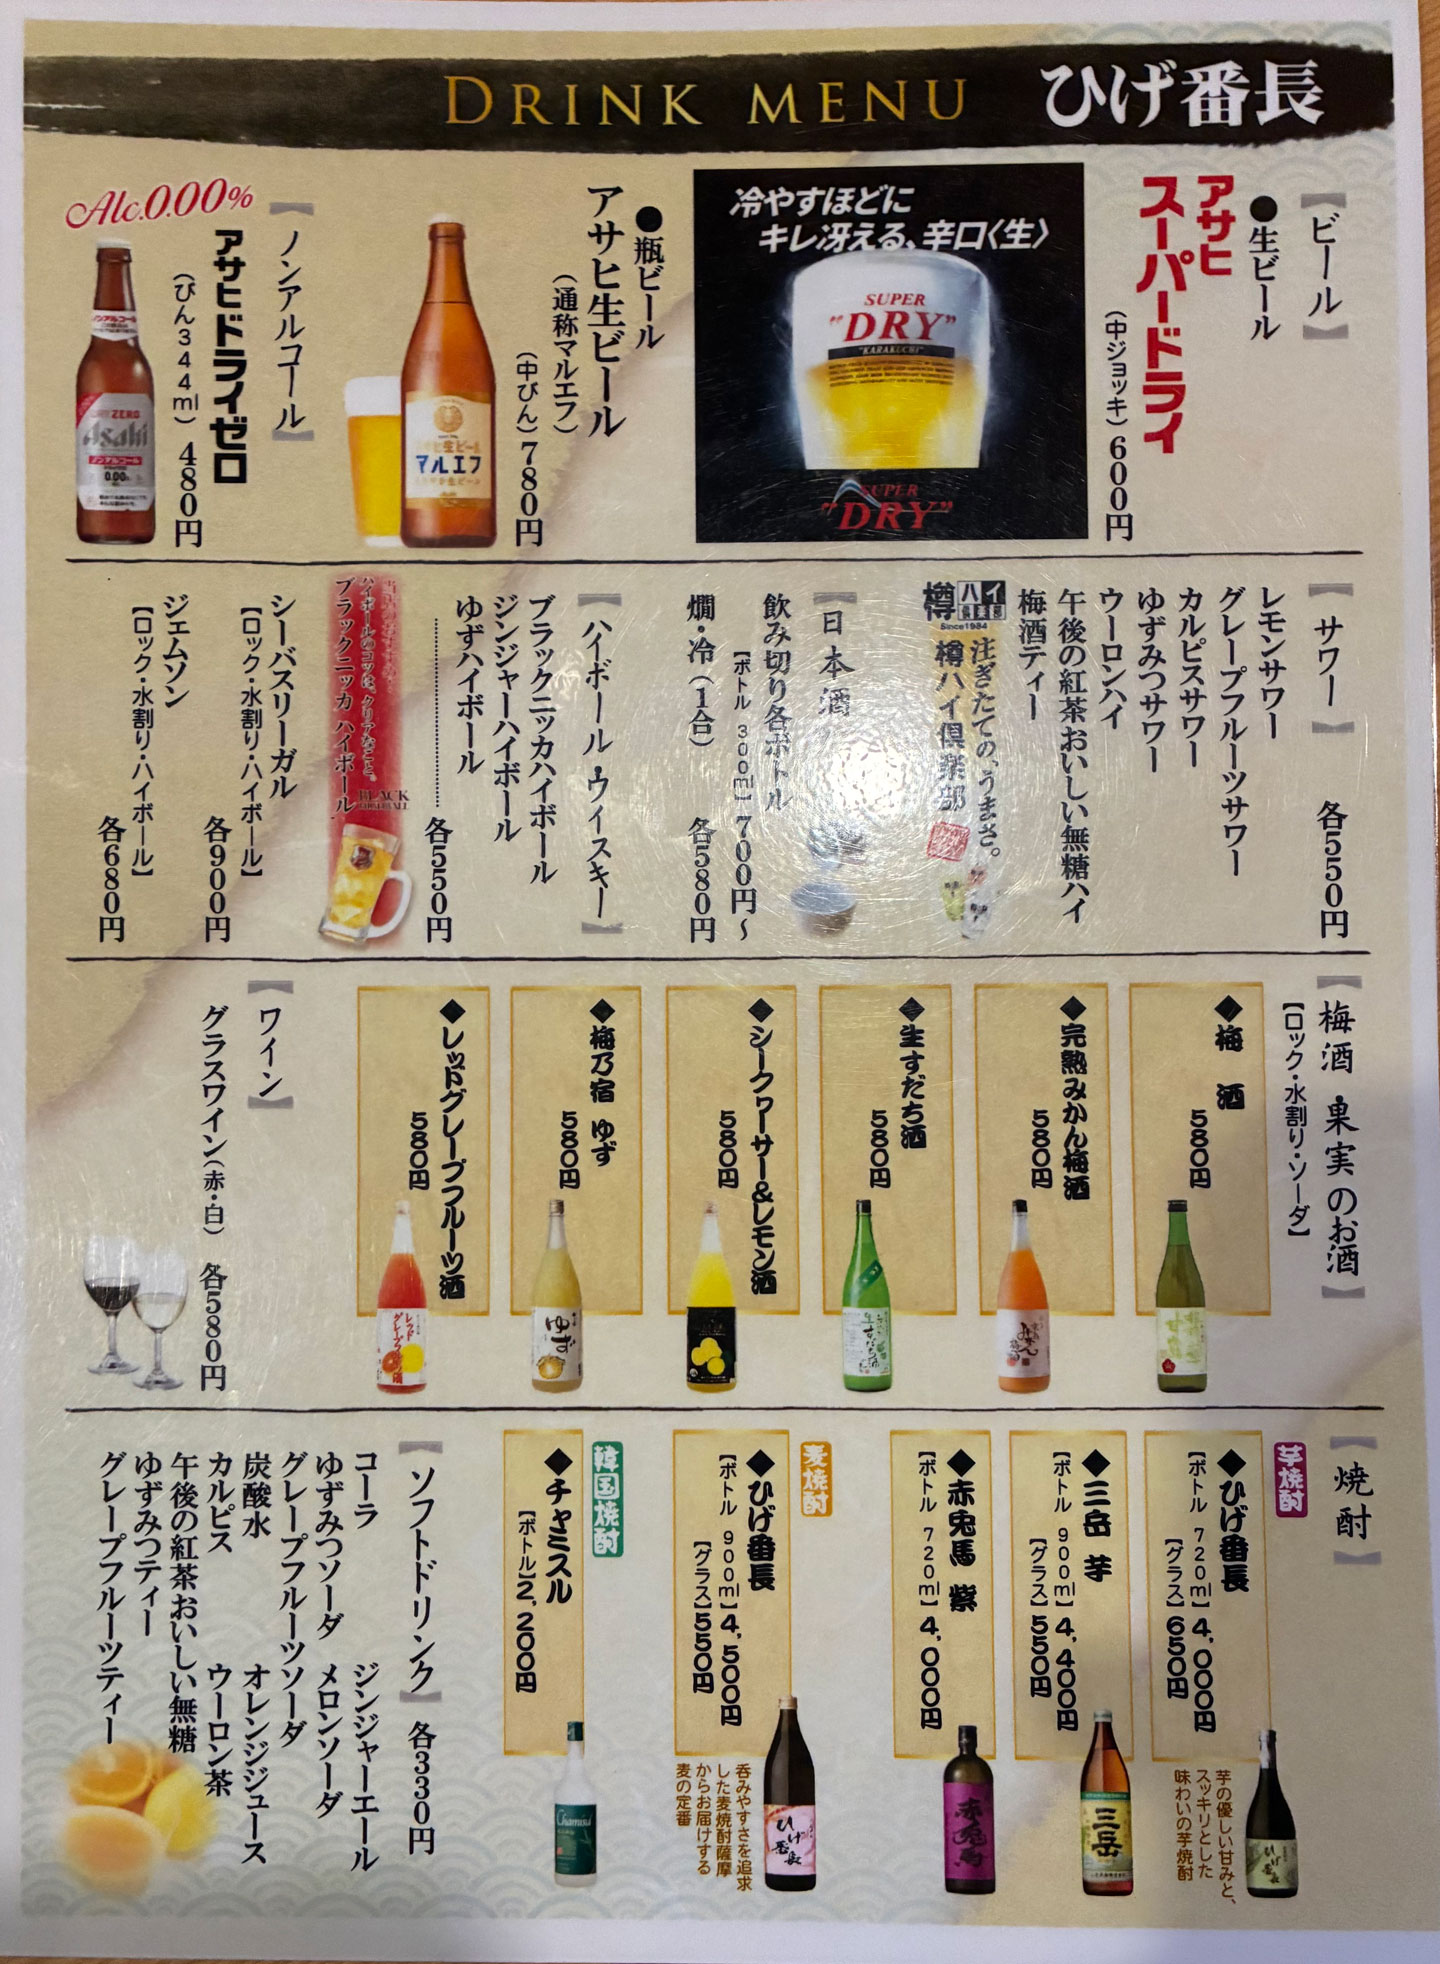 DRINK MENU ひげ番長
【ビール】
●生ビール
アサヒ
スーパードライ
(中ジョッキ)600円
冷やすほどに
キレ冴える、辛口〈生〉
SUPER
"DRY"
"KARAKUCHI"
SUPER
"DRY"
●瓶ビール
アサヒ生ビール
(通称マルエフ)
(中びん)780円
生ビール
マルエフ
【ノンアルコール】
アサヒドライゼロ
(びん344ml)480円
Alc.0.00%
ノンアルコール
DRY ZERO
Asahi
ノンアルコール
0.00%
【サワー】 各550円
レモンサワー
グレープフルーツサワー
カルピスサワー
ゆずみつサワー
ウーロンハイ
午後の紅茶おいしい無糖ハイ
梅酒ティー
樽ハイ倶楽部
Since1984
注ぎたての、うまさ。
樽ハイ倶楽部
【日本酒】
飲み切り各ボトル
【ボトル 300ml】700円〜
燗・冷(1合) 各580円
【ハイボール・ウイスキー】
ブラックニッカハイボール
ジンジャーハイボール
ゆずハイボール
各550円
ハイボールのコツは、クリアなこと。
ブラックニッカ ハイボール
BLACK
シーバスリーガル
【ロック・水割り・ハイボール】
各900円
ジェムソン
【ロック・水割り・ハイボール】
各680円
【梅酒・果実のお酒】
【ロック・水割り・ソーダ】
◆梅 酒
580円
◆完熟みかん梅酒
580円
みかん
◆生すだち酒
580円
生すだち酒
◆シークヮーサー&レモン酒
580円
◆梅乃宿 ゆず
580円
ゆず
◆レッドグレープフルーツ酒
580円
レッド
グレープフルーツ酒
【ワイン】
グラスワイン(赤・白) 各580円
【焼酎】
芋焼酎
◆ひげ番長
【ボトル 720ml】4,000円
【グラス】650円
芋の優しい甘みと、
スッキリとした
味わいの芋焼酎
ひげ番長
◆三岳 芋
【ボトル 900ml】4,400円
【グラス】550円
三岳
◆赤兎馬 紫
【ボトル 720ml】4,000円
赤兎馬
麦焼酎
◆ひげ番長
【ボトル 900ml】4,500円
【グラス】550円
呑みやすさを追求
した麦焼酎薩摩
からお届けする
麦の定番
ひげ番長
韓国焼酎
◆チャミスル
【ボトル】2,200円
Chamisul
【ソフトドリンク】 各330円
コーラ ジンジャーエール
ゆずみつソーダ メロンソーダ
グレープフルーツソーダ
炭酸水 オレンジジュース
カルピス ウーロン茶
午後の紅茶おいしい無糖
ゆずみつティー
グレープフルーツティー